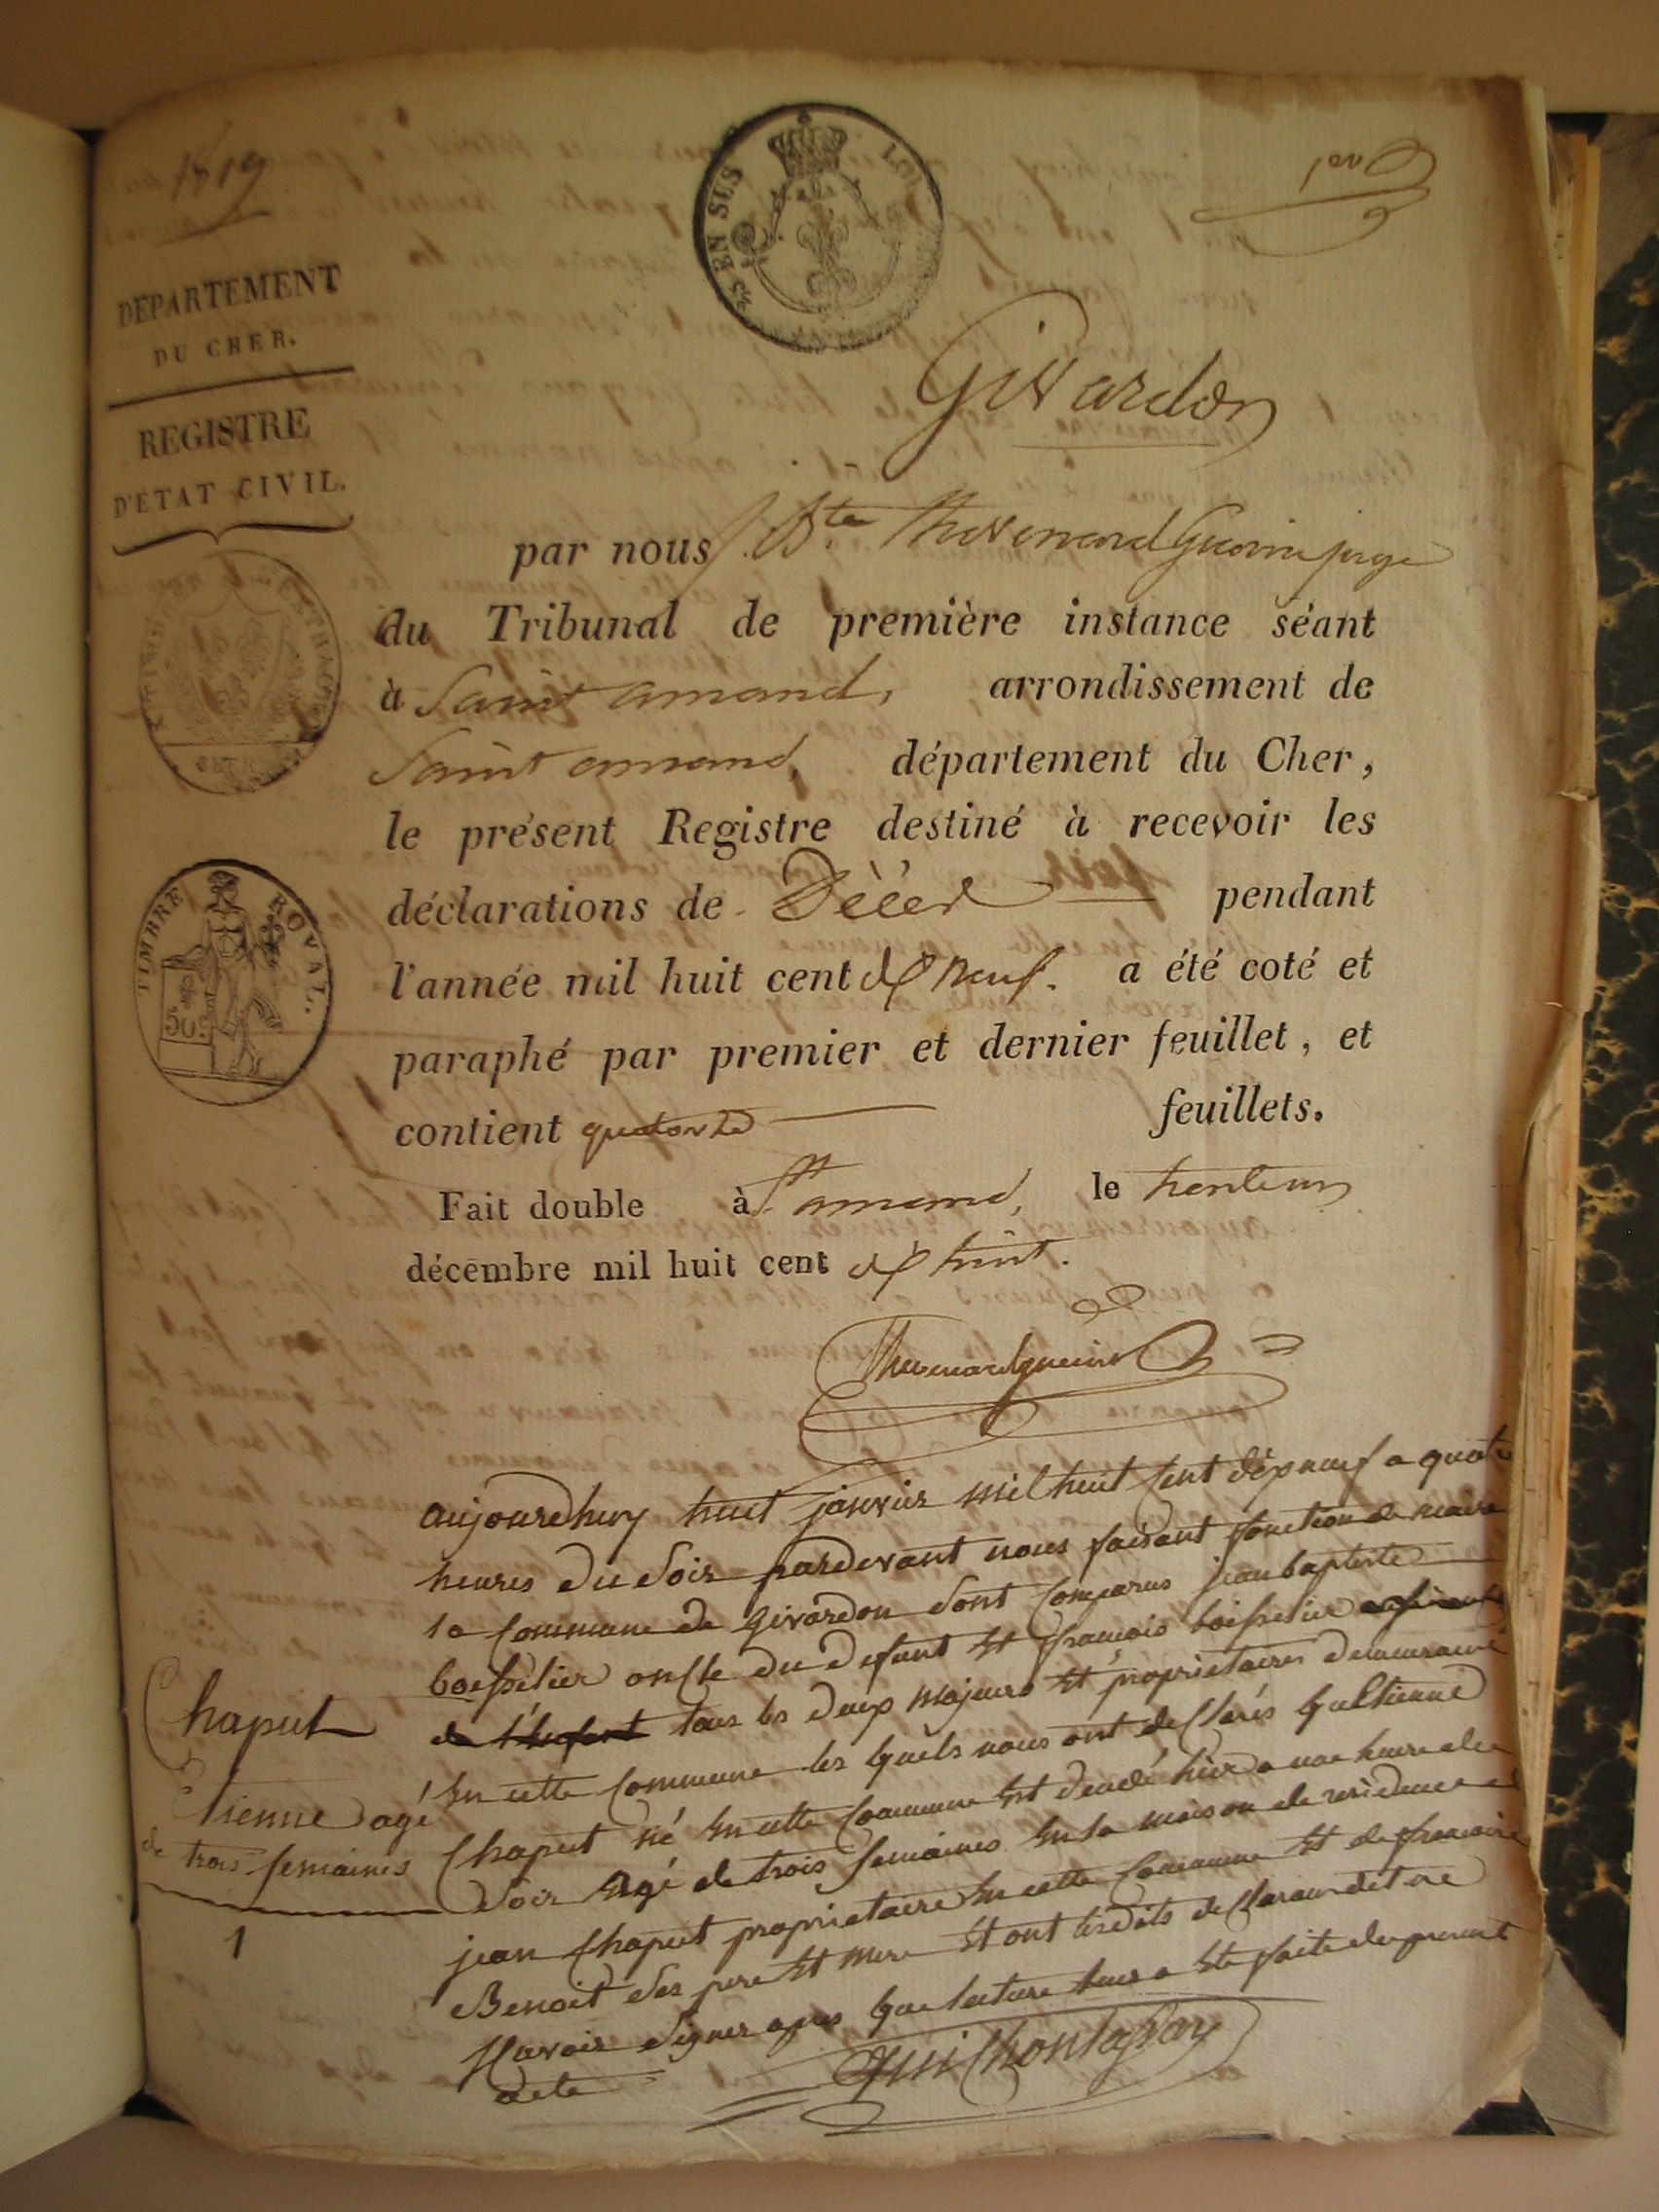 1819
1er
EN SUS
DÉPARTEMENT
DU CHER.
REGISTRE
D'ÉTAT CIVIL.
Givardon
par nous J. Bte Thevenard Guerin juge
du Tribunal de première instance séant
à Saint amand, arrondissement de
Saint amand, département du Cher,
le présent Registre destiné à recevoir les
déclarations de Décès pendant
l'année mil huit cent dix neuf. a été coté et
paraphé par premier et dernier feuillet, et
contient quatorze feuillets.
Fait double à St amand, le trente un
décembre mil huit cent dix huit.
TIMBRE ROYAL.
50c
Thevenardguerin
aujourdhuy huit janvier mil huit sent dix neuf a quatre
heures du soir pardevant nous faisant fonction de maire
la commune de Givardon sont comparus jean baptiste
boisselier oncle du defunt et francois boisselier
de l'enfent tous les deux majeurs et proprietaires demeurant
en cette commune les quels nous ont desclarés que etienne
Chaput né en cette commune est decedé hier a une heure du
soir agé de trois semaines en la maison de residence de
jean Chaput proprietaire en cette commune et de francoise
Benoit ses pere et mere et ont lesdits desclarans dit ne
scavoir signer apres que lecture leur a ete faite du present
acte
Chaput
Etienne agé
de trois semaines
1